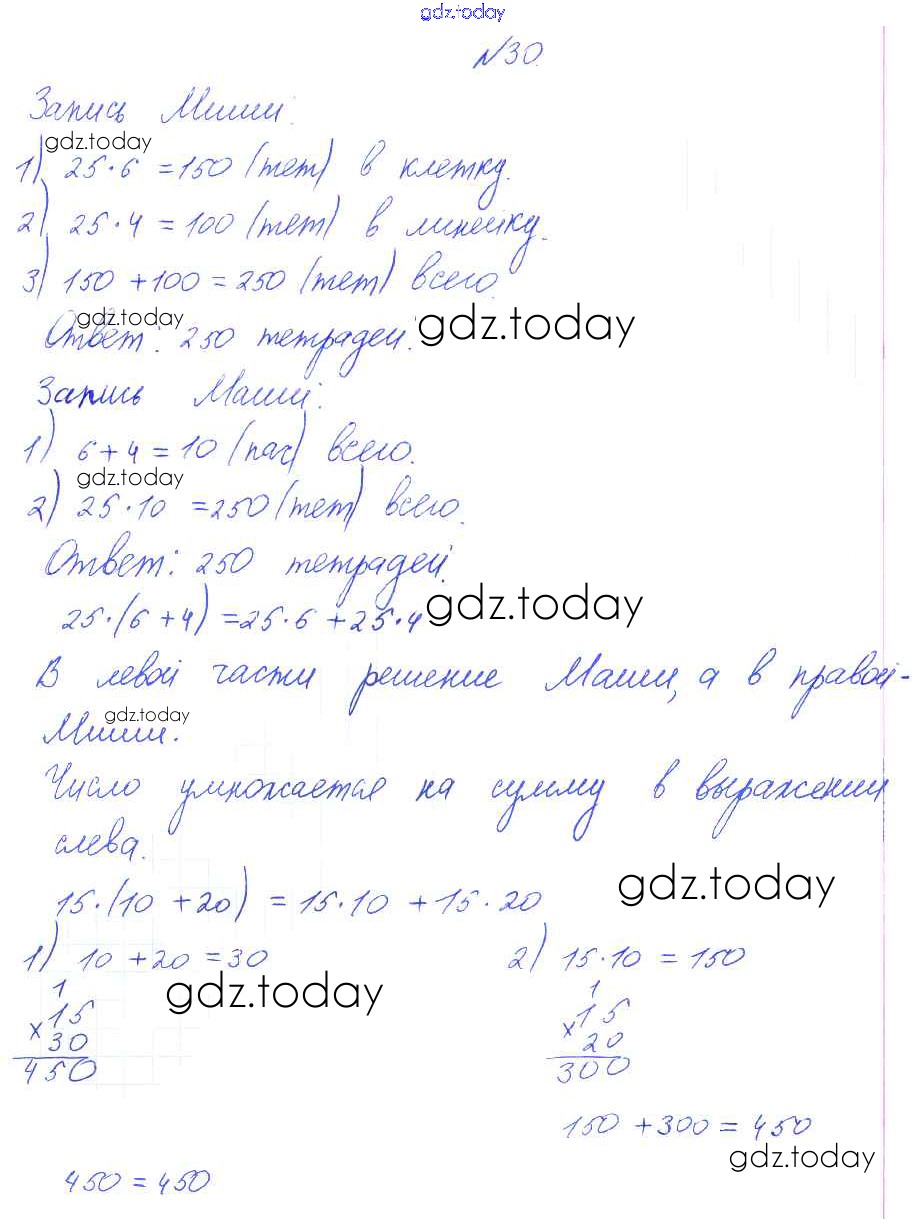 gdz.today
№30.
Запись Миши:
gdz.today
1) 25·6 =150 (тет) в клетку.
2) 25·4 =100 (тет) в линейку.
3) 150 +100 = 250 (тет) всего.
gdz.today
Ответ: 250 тетрадей. gdz.today
Запись Маши:
1) 6+4 = 10 (пач) всего.
gdz.today
2) 25·10 =250 (тет) всего.
Ответ: 250 тетрадей.
25·(6+4) =25·6 +25·4 gdz.today
В левой части решение Маши, а в правой-
gdz.today
Миши.
Число умножается на сумму в выражении
слева.
gdz.today
15·(10 +20) = 15·10 +15·20
1) 10 +20 =30
gdz.today
1
× 15
30
450
2) 15·10 = 150
1
× 15
20
300
150 +300 = 450
gdz.today
450 = 450